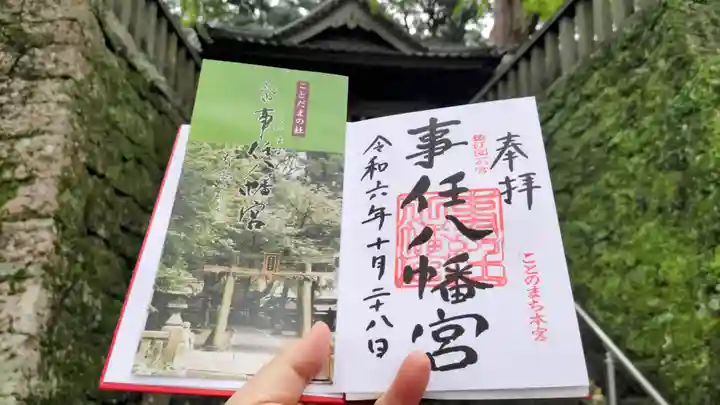 ことだまの社
事任八幡宮
奉拝
事任八幡宮
ことのまち本宮
令和六年十月二十八日